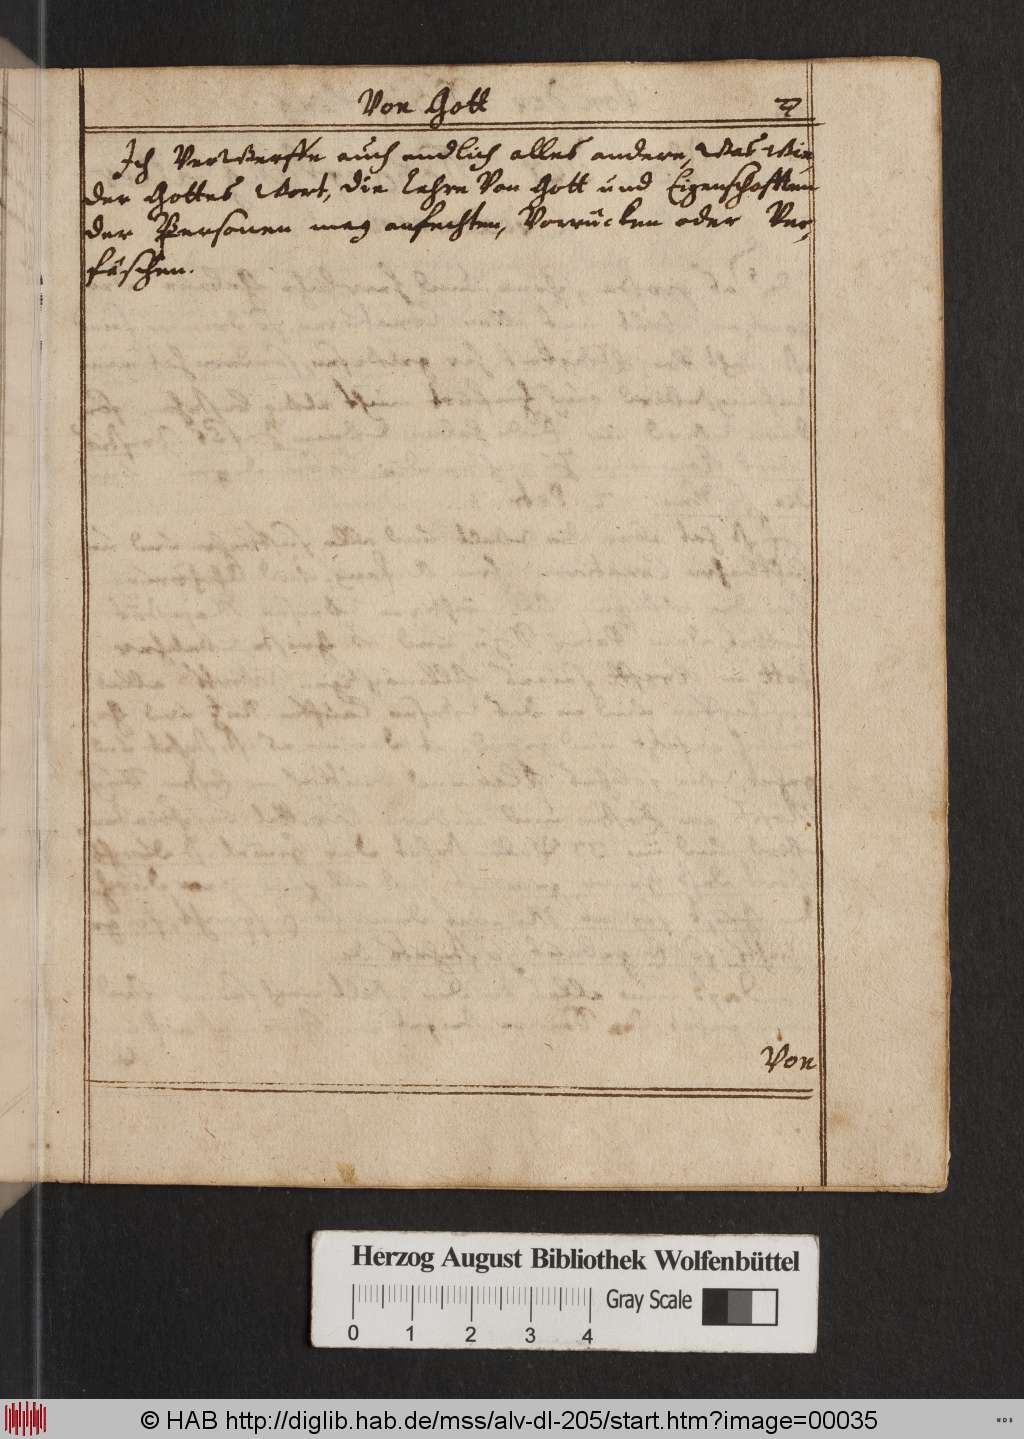 Von Gott
Ich Verwerffe auch endlich alles andere, Was Wie,
der Gottes Wort, die Lehre Von Gott und Eigenschafften
der Personen mag anfechten, Vorrücken oder Ver,
fäschen.
Von
Herzog August Bibliothek Wolfenbüttel
Gray Scale
0 1 2 3 4
© HAB http://diglib.hab.de/mss/alv-dl-205/start.htm?image=00035
WDB